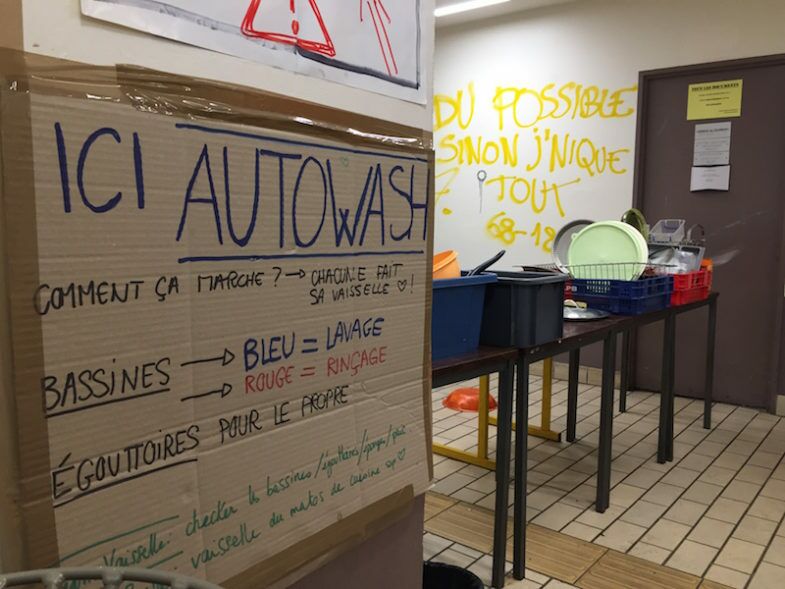 ICI AUTOWASH
COMMENT ÇA MARCHE ? → CHACUN·E FAIT
SA VAISSELLE ♡ !
BASSINES → BLEU = LAVAGE
→ ROUGE = RINÇAGE
ÉGOUTTOIRES POUR LE PROPRE
Vaisselle: checker les bassines/égouttoires/éponges/
vaisselle du matos de cuisine
DU POSSIBLE
SINON J'NIQUE
TOUT
TOUS LES DOCUMENTS